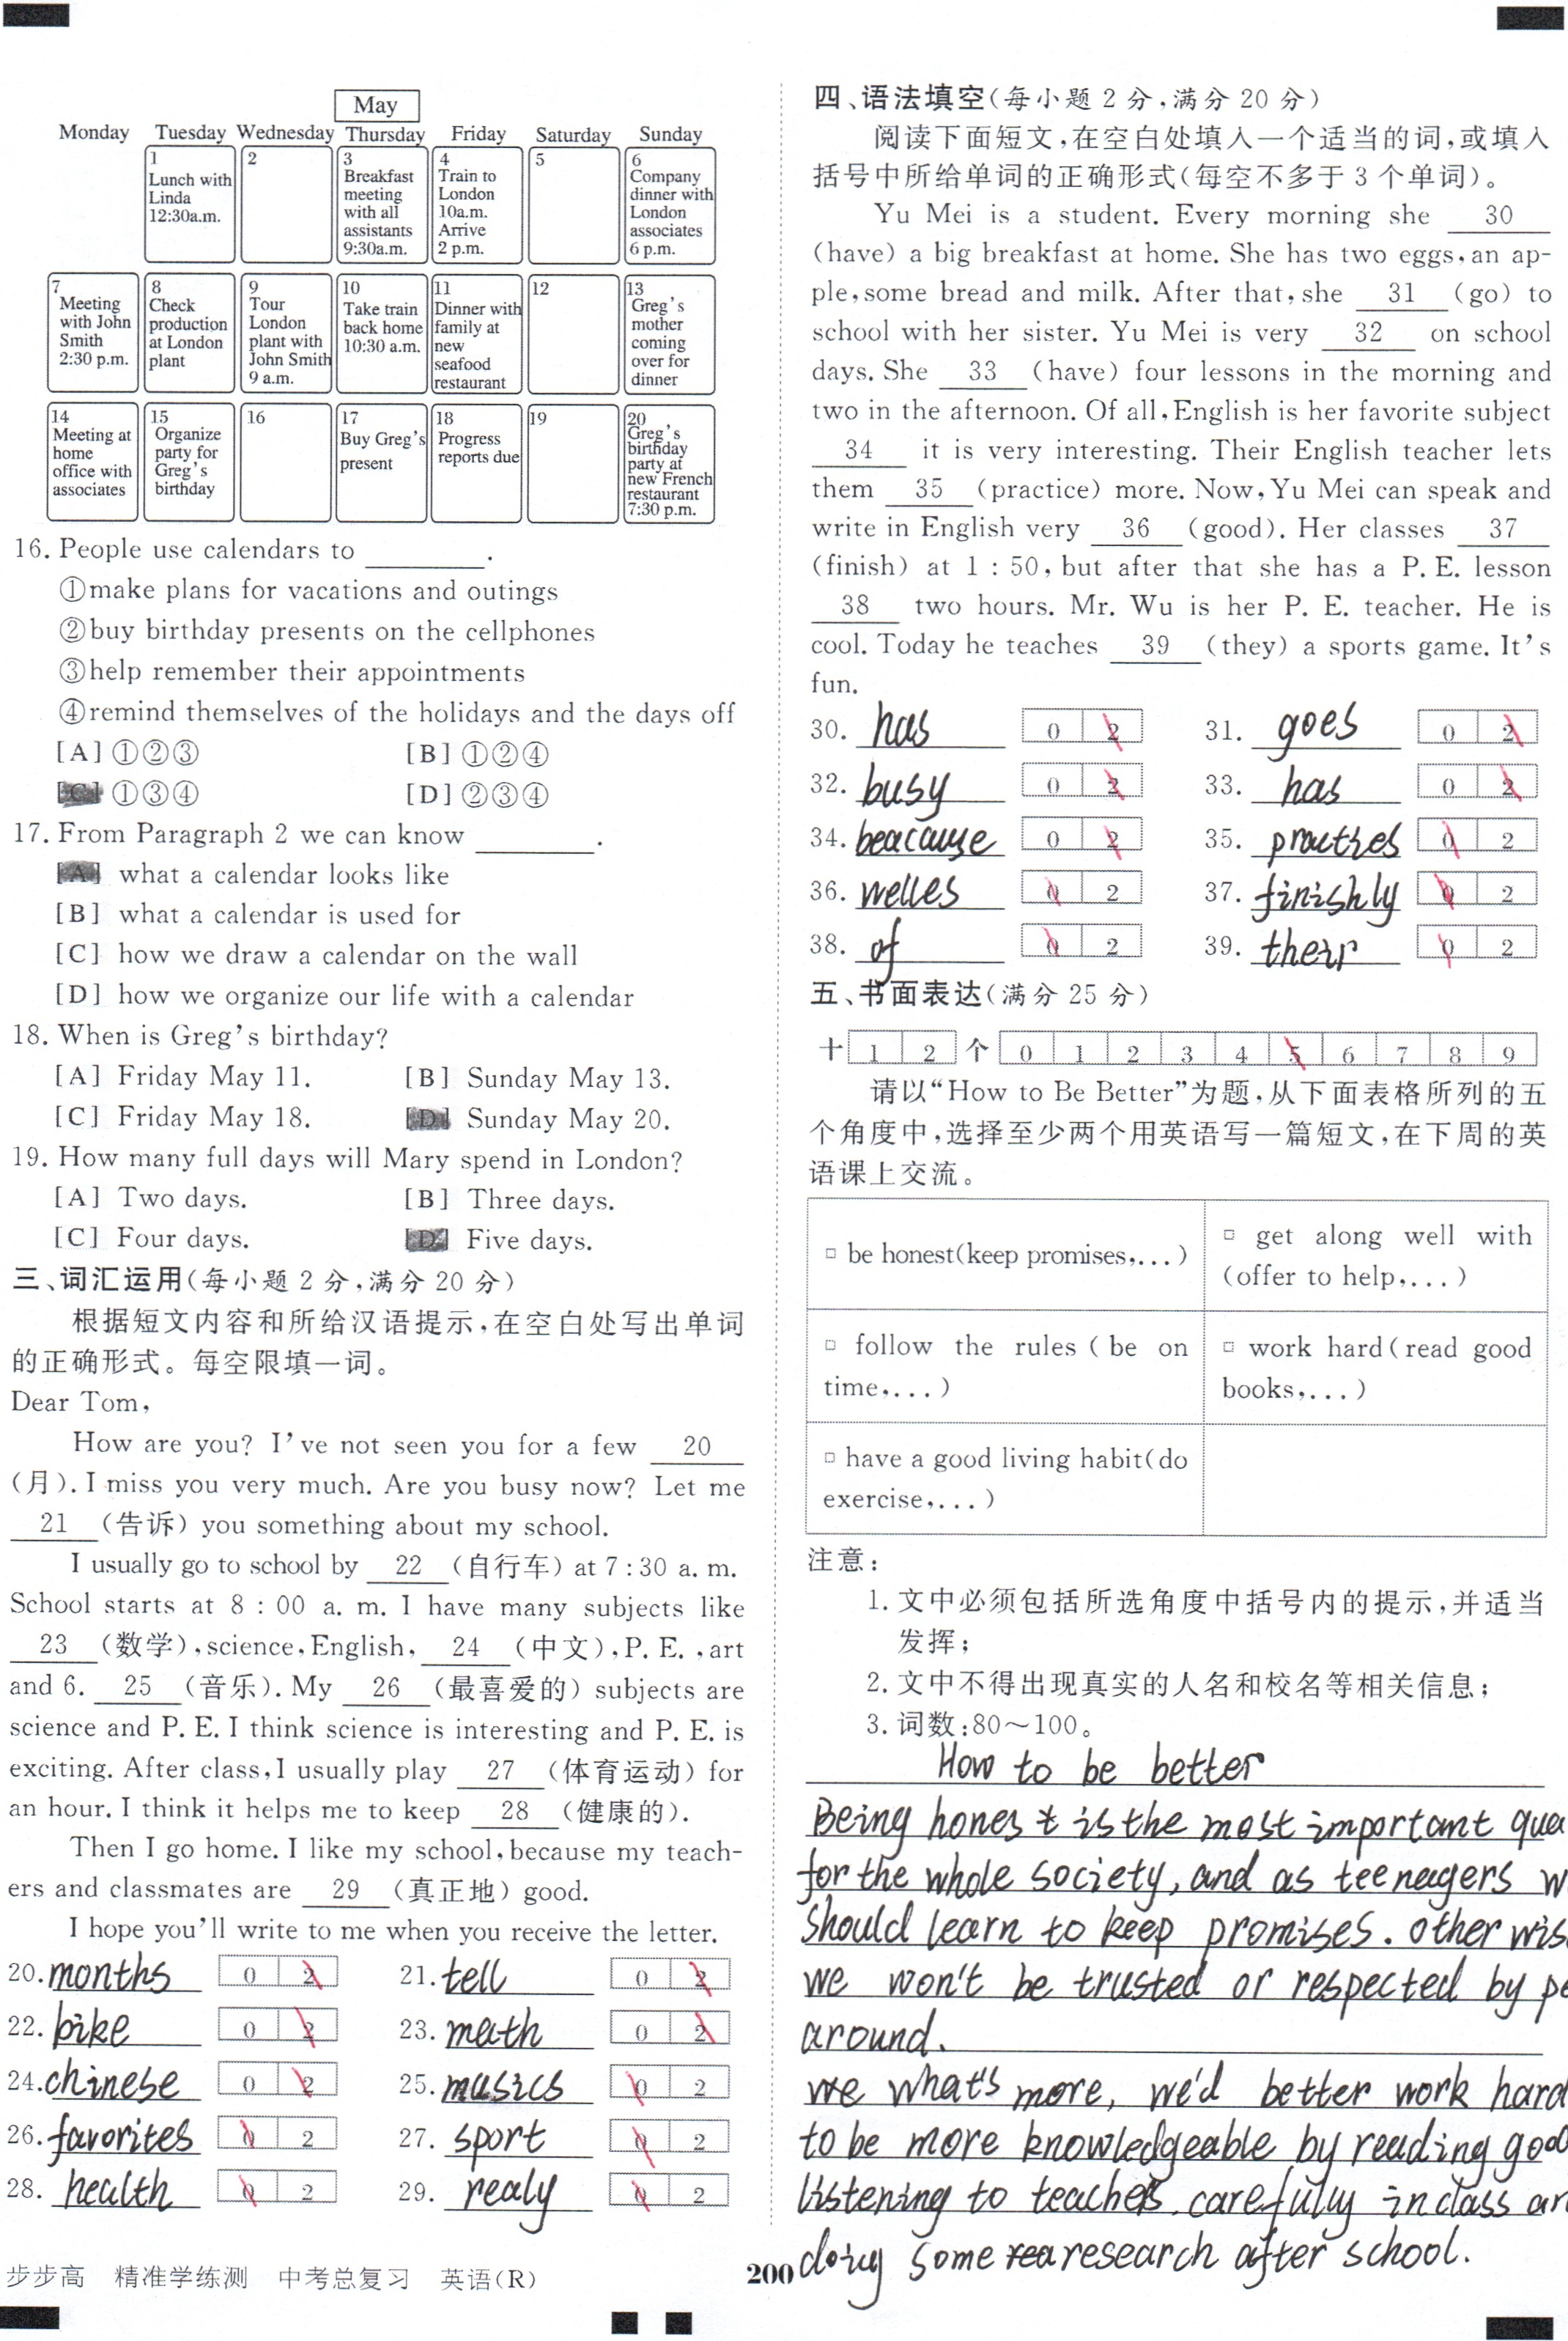 May
Monday Tuesday Wednesday Thursday Friday Saturday Sunday
1 Lunch with Linda 12:30a.m.
2
3 Breakfast meeting with all assistants 9:30a.m.
4 Train to London 10a.m. Arrive 2 p.m.
5
6 Company dinner with London associates 6 p.m.
7 Meeting with John Smith 2:30 p.m.
8 Check production at London plant
9 Tour London plant with John Smith 9 a.m.
10 Take train back home 10:30 a.m.
11 Dinner with family at new seafood restaurant
12
13 Greg's mother coming over for dinner
14 Meeting at home office with associates
15 Organize party for Greg's birthday
16
17 Buy Greg's present
18 Progress reports due
19
20 Greg's birthday party at new French restaurant 7:30 p.m.
16. People use calendars to ____.
①make plans for vacations and outings
②buy birthday presents on the cellphones
③help remember their appointments
④remind themselves of the holidays and the days off
[A] ①②③ [B] ①②④
[C] ①③④ [D] ②③④
17. From Paragraph 2 we can know ____.
[A] what a calendar looks like
[B] what a calendar is used for
[C] how we draw a calendar on the wall
[D] how we organize our life with a calendar
18. When is Greg's birthday?
[A] Friday May 11. [B] Sunday May 13.
[C] Friday May 18. [D] Sunday May 20.
19. How many full days will Mary spend in London?
[A] Two days. [B] Three days.
[C] Four days. [D] Five days.
三、词汇运用(每小题 2 分,满分 20 分)
根据短文内容和所给汉语提示,在空白处写出单词
的正确形式。每空限填一词。
Dear Tom,
How are you? I've not seen you for a few 20
(月). I miss you very much. Are you busy now? Let me
21 (告诉) you something about my school.
I usually go to school by 22 (自行车) at 7:30 a. m.
School starts at 8:00 a. m. I have many subjects like
23 (数学), science, English, 24 (中文), P. E. , art
and 6. 25 (音乐). My 26 (最喜爱的) subjects are
science and P. E. I think science is interesting and P. E. is
exciting. After class, I usually play 27 (体育运动) for
an hour. I think it helps me to keep 28 (健康的).
Then I go home. I like my school, because my teach-
ers and classmates are 29 (真正地) good.
I hope you'll write to me when you receive the letter.
20. months 0 2 21. tell 0 2
22. bike 0 2 23. math 0 2
24. chinese 0 2 25. musics 0 2
26. favorites 0 2 27. sport 0 2
28. health 0 2 29. realy 0 2
步步高 精准学练测 中考总复习 英语(R)
200
四、语法填空(每小题 2 分,满分 20 分)
阅读下面短文,在空白处填入一个适当的词,或填入
括号中所给单词的正确形式(每空不多于 3 个单词)。
Yu Mei is a student. Every morning she 30
(have) a big breakfast at home. She has two eggs, an ap-
ple, some bread and milk. After that, she 31 (go) to
school with her sister. Yu Mei is very 32 on school
days. She 33 (have) four lessons in the morning and
two in the afternoon. Of all, English is her favorite subject
34 it is very interesting. Their English teacher lets
them 35 (practice) more. Now, Yu Mei can speak and
write in English very 36 (good). Her classes 37
(finish) at 1:50, but after that she has a P. E. lesson
38 two hours. Mr. Wu is her P. E. teacher. He is
cool. Today he teaches 39 (they) a sports game. It's
fun.
30. has 0 2 31. goes 0 2
32. busy 0 2 33. has 0 2
34. beacause 0 2 35. practies 0 2
36. welles 0 2 37. finishly 0 2
38. of 0 2 39. their 0 2
五、书面表达(满分 25 分)
十 1 2 个 0 1 2 3 4 5 6 7 8 9
请以“How to Be Better”为题,从下面表格所列的五
个角度中,选择至少两个用英语写一篇短文,在下周的英
语课上交流。
□ be honest(keep promises,...) □ get along well with (offer to help,...)
□ follow the rules (be on time,...) □ work hard(read good books,...)
□ have a good living habit(do exercise,...)
注意:
1. 文中必须包括所选角度中括号内的提示,并适当
发挥;
2. 文中不得出现真实的人名和校名等相关信息;
3. 词数:80~100。
How to be better
Being honest is the most important qua
for the whole society, and as teenagers w
should learn to keep promises. Other wis
we won't be trusted or respected by pe
around.
we what's more, we'd better work hard
to be more knowledgeable by reading good
listening to teachers carefully in class an
doing some rea research after school.